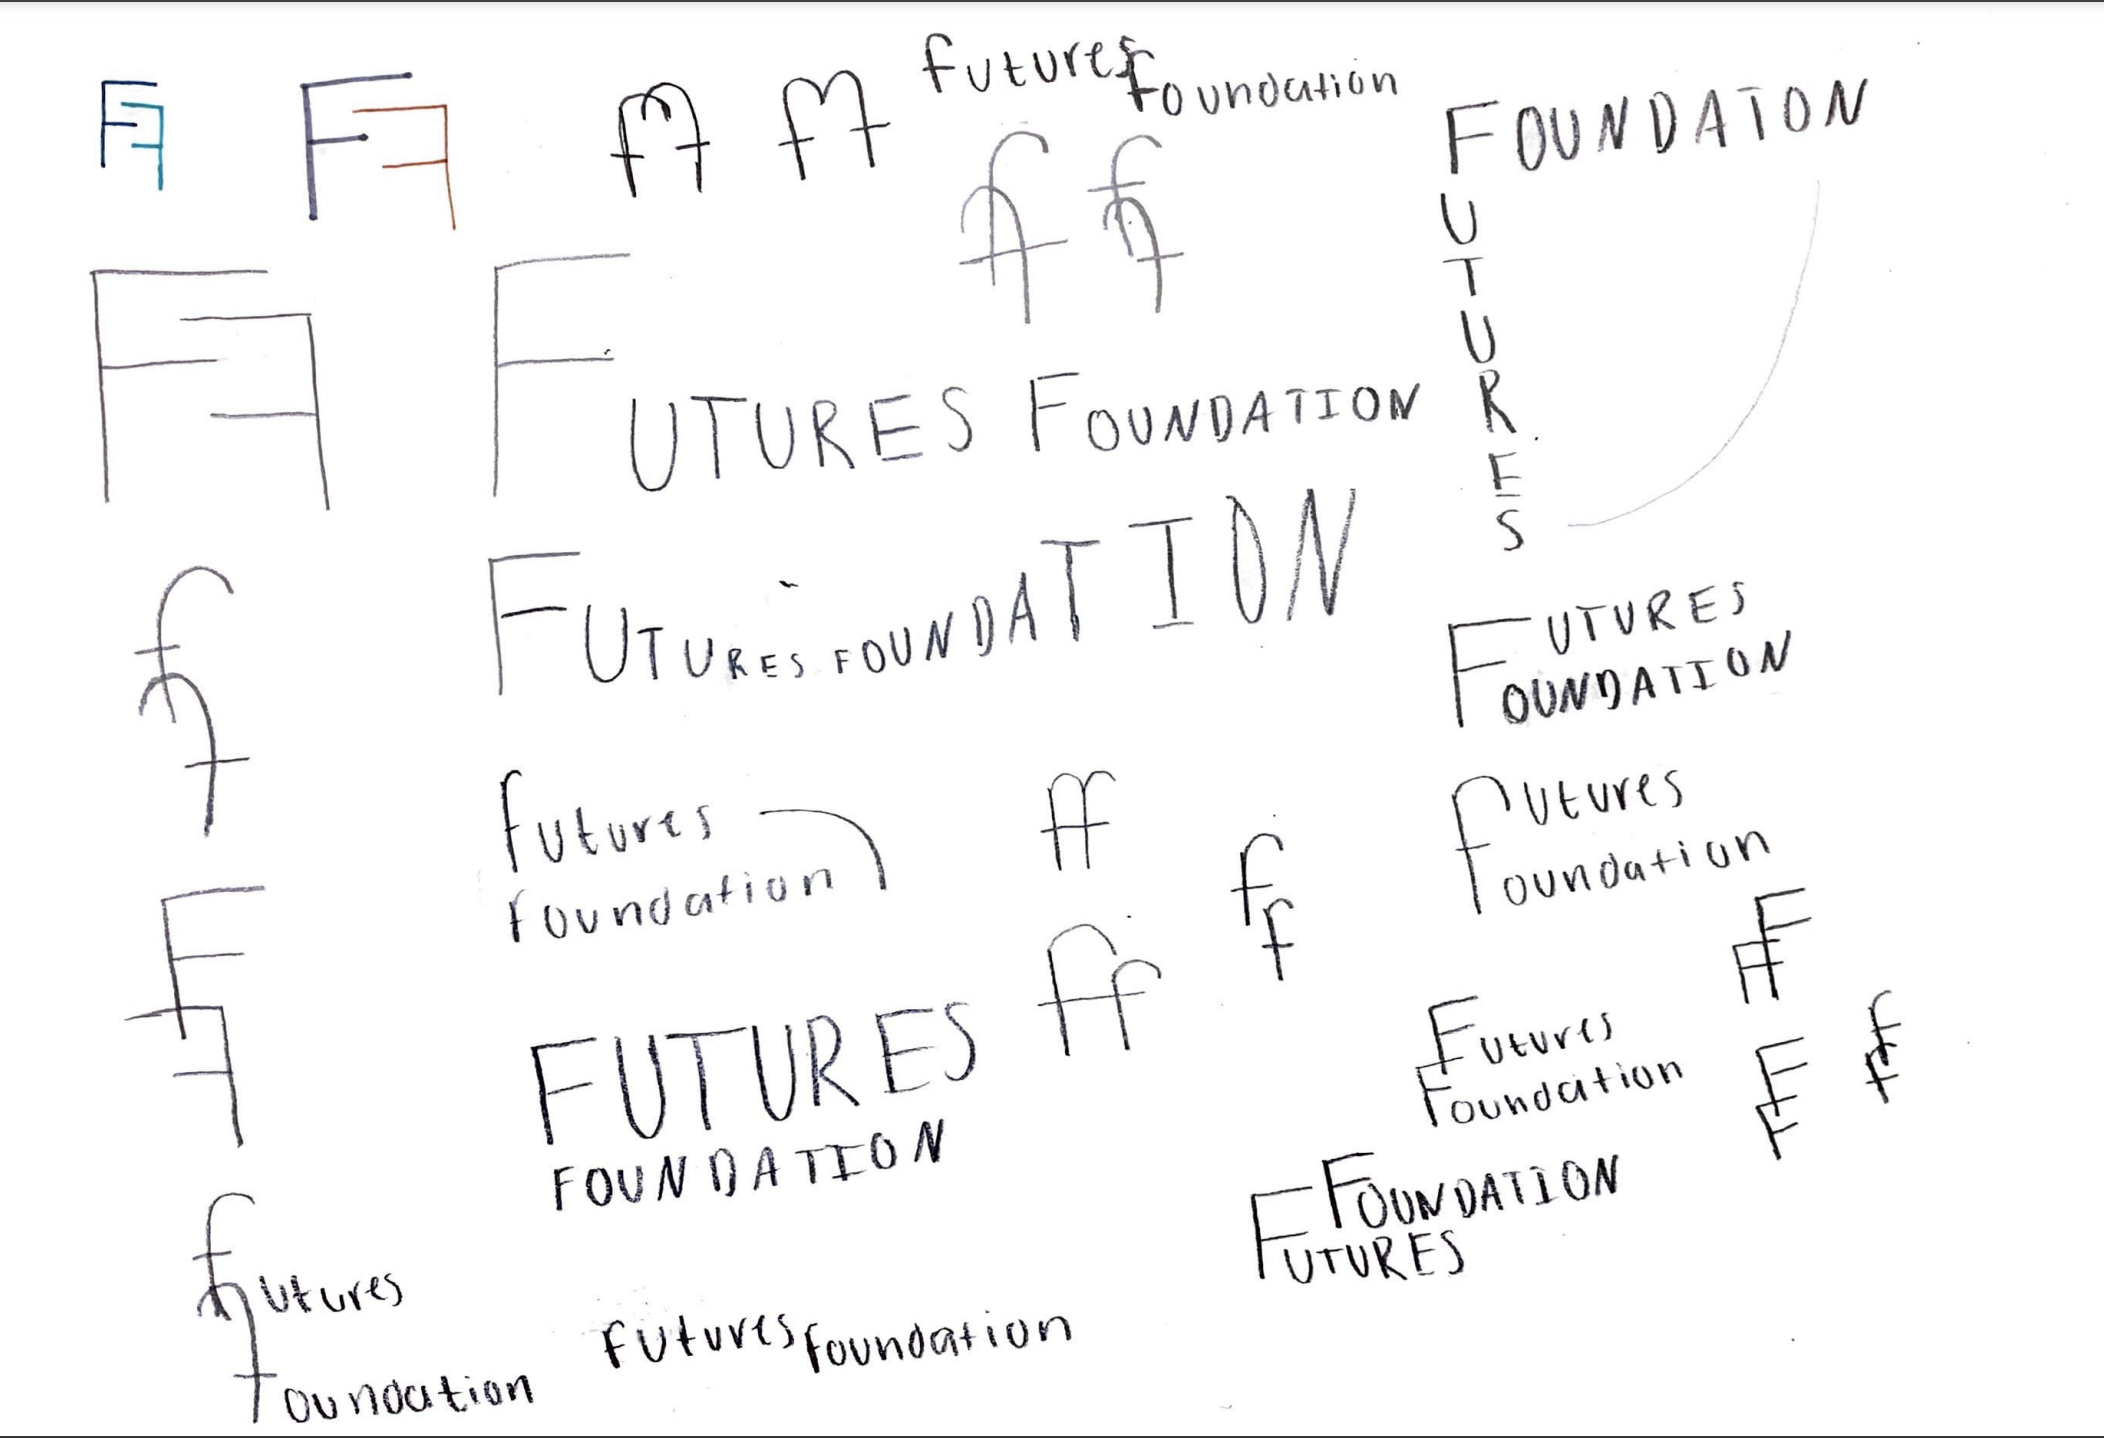 FF
FF
ff
ff
futures
foundation
ff
ff
FOUNDATON
UTURES
FF
FUTURES FOUNDATION
ff
FUTURES FOUNDATION
FUTURES
OUNDATION
futures
foundation
ff
ff
futures
oundation
FF
ff
FUTURES
FOUNDATION
FF
Futures
Foundation
FF
ff
FOUNDATION
FUTURES
futures
foundation
futures foundation